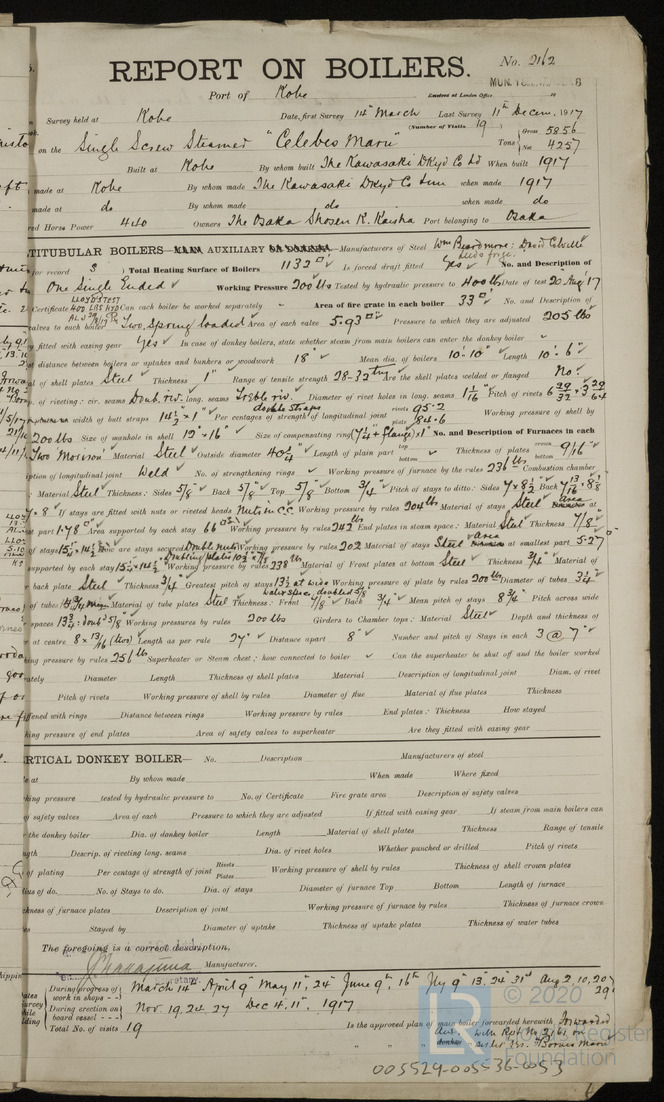 REPORT ON BOILERS. No. 2162
Port of Kobe
Survey held at Kobe Date, first Survey 14th March Last Survey 11th Decem. 1917
(Number of Visits 19) Gross 5856
on the Single Screw Steamer "Celebes Maru" Tons Net 4257
Built at Kobe By whom built The Kawasaki Dkyd Co Ld When built 1917
made at Kobe By whom made The Kawasaki Dkyd Co when made 1917
made at do By whom made do when made do
Horse Power 440 Owners The Osaka Shosen K. Kaisha Port belonging to Osaka
TITUBULAR BOILERS— MAIN AUXILIARY OR DONKEY.— Manufacturers of Steel Wm Beardmore: David Colville
for record S) Total Heating Surface of Boilers 1132 □' Is forced draft fitted Yes No. and Description of
One Single Ended Working Pressure 200 lbs Tested by hydraulic pressure to 400 lbs Date of test 20 Aug '17
LLOYD'S TEST 400 LBS HYD
Certificate Can each boiler be worked separately Area of fire grate in each boiler 33 □' No. and Description of
valves to each boiler Two Spring loaded Area of each valve 5.93 □" Pressure to which they are adjusted 205 lbs
fitted with easing gear Yes In case of donkey boilers, state whether steam from main boilers can enter the donkey boiler
distance between boilers or uptakes and bunkers or woodwork 18" Mean dia. of boilers 10'-10" Length 10'-6"
of shell plates Steel Thickness 1" Range of tensile strength 28-32 Are the shell plates welded or flanged No.
of riveting: cir. seams Doub. riv. long. seams Treble riv. double straps Diameter of rivet holes in long. seams 1 1/16" Pitch of rivets
width of butt straps 14 1/2 × 1" Per centages of strength of longitudinal joint rivets 95.2 plate 84.6 Working pressure of shell by
200 lbs Size of manhole in shell 12" × 16" Size of compensating ring (7 1/4 + flange) × 1" No. and Description of Furnaces in each
Two Morison Material Steel Outside diameter 40 1/4" Length of plain part top bottom Thickness of plates crown bottom 9/16"
ription of longitudinal joint Weld No. of strengthening rings Working pressure of furnace by the rules 236 lbs Combustion chamber
Material Steel Thickness: Sides 5/8" Back 5/8" Top 5/8" Bottom 3/4" Pitch of stays to ditto: Sides 7 × 8 1/2" Back
7 × 8" If stays are fitted with nuts or riveted heads Nuts in C.C. Working pressure by rules 204 lbs Material of stays Steel area
part 1.78 □" Area supported by each stay 66 Working pressure by rules 242 lbs End plates in steam space: Material Steel Thickness 7/8"
of stays How are stays secured Double nuts Working pressure by rules 202 Material of stays Steel area at smallest part 5.27 □"
supported by each stay Working pressure by rules 238 lbs Material of Front plates at bottom Steel Thickness 3/4" Material of
back plate Steel Thickness 3/4" Greatest pitch of stays 13 1/2 at wide Working pressure of plate by rules 200 lbs Diameter of tubes 3 1/4"
of tubes Material of tube plates Steel Thickness: Front 7/8" Back 3/4" Mean pitch of stays 8 3/4" Pitch across wide
spaces Working pressures by rules 200 lbs Girders to Chamber tops: Material Steel Depth and thickness of
at centre 8 × 13/16 (two) Length as per rule 27" Distance apart 8" Number and pitch of Stays in each 3 @ 7"
king pressure by rules 256 lb Superheater or Steam chest; how connected to boiler Can the superheater be shut off and the boiler worked
rately Diameter Length Thickness of shell plates Material Description of longitudinal joint Diam. of rivet
Pitch of rivets Working pressure of shell by rules Diameter of flue Material of flue plates Thickness
ffened with rings Distance between rings Working pressure by rules End plates: Thickness How stayed
king pressure of end plates Area of safety valves to superheater Are they fitted with easing gear
RTICAL DONKEY BOILER— No. Description Manufacturers of steel
de at By whom made When made Where fixed
king pressure tested by hydraulic pressure to No. of Certificate Fire grate area Description of safety valves
of safety valves Area of each Pressure to which they are adjusted If fitted with easing gear If steam from main boilers can
the donkey boiler Dia. of donkey boiler Length Material of shell plates Thickness Range of tensile
ngth Descrip. of riveting long. seams Dia. of rivet holes Whether punched or drilled Pitch of rivets
of plating Per centage of strength of joint Rivets Plates Working pressure of shell by rules Thickness of shell crown plates
ius of do. No. of Stays to do. Dia. of stays Diameter of furnace Top Bottom Length of furnace
ckness of furnace plates Description of joint Working pressure of furnace by rules Thickness of furnace crown
Stayed by Diameter of uptake Thickness of uptake plates Thickness of water tubes
The foregoing is a correct description,
Manufacturer.
During progress of work in shops March 14 April 9 May 11, 24 June 9, 16 Jly 9 13, 24 31 Aug 2, 10, 20, 29
During erection on board vessel Nov. 19, 24, 27 Dec 4, 11. 1917
Total No. of visits 19 Is the approved plan of main boiler forwarded herewith forwarded
with Rpt No 2161 on
" " " donkey " " " Borneo Maru
© 2020
Lloyd's Register
Foundation
LR
005529-005536-0053